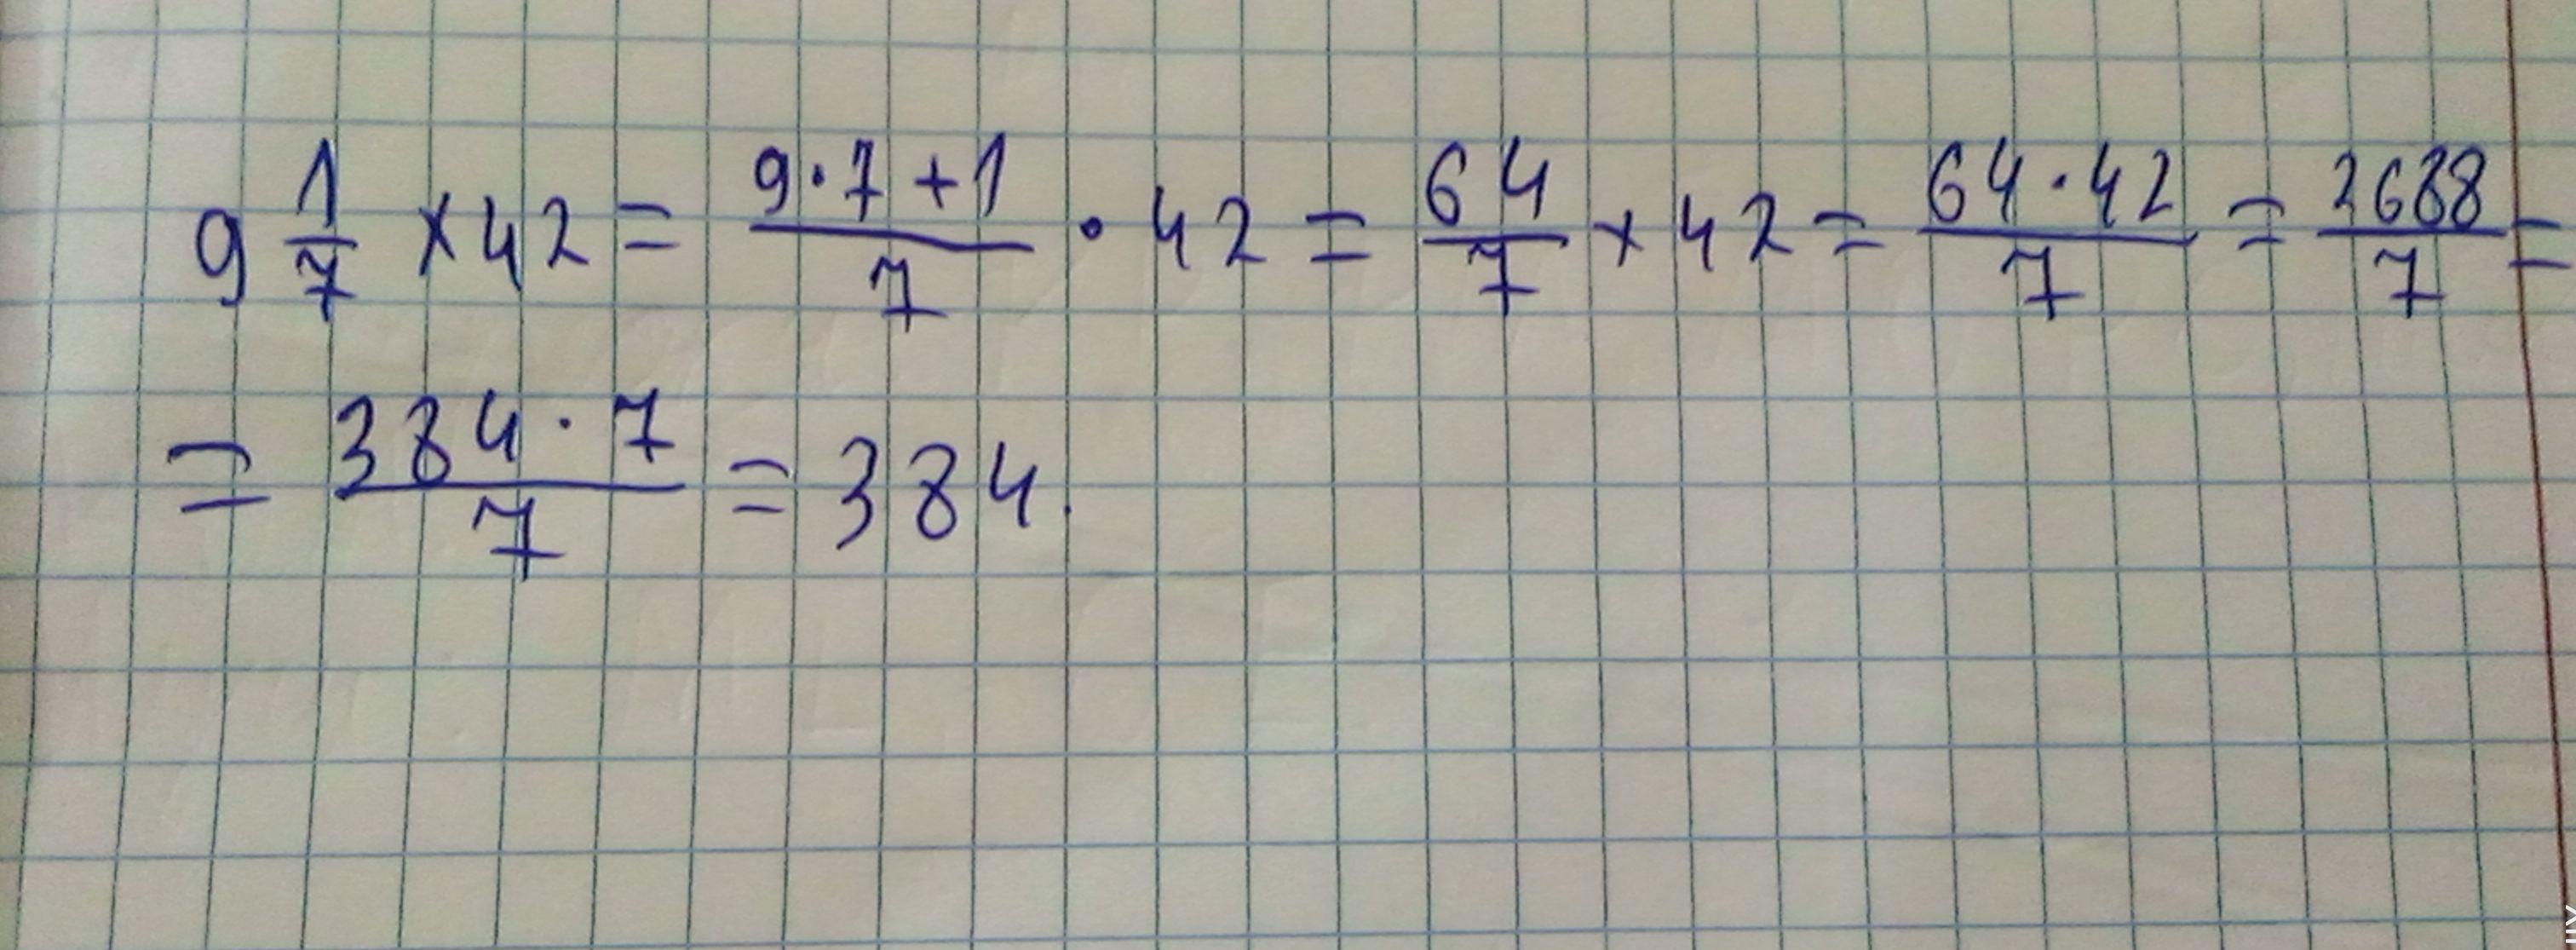 9 1/7 × 42 = (9·7+1)/7 · 42 = 64/7 × 42 = (64·42)/7 = 2688/7 =
= (384·7)/7 = 384.